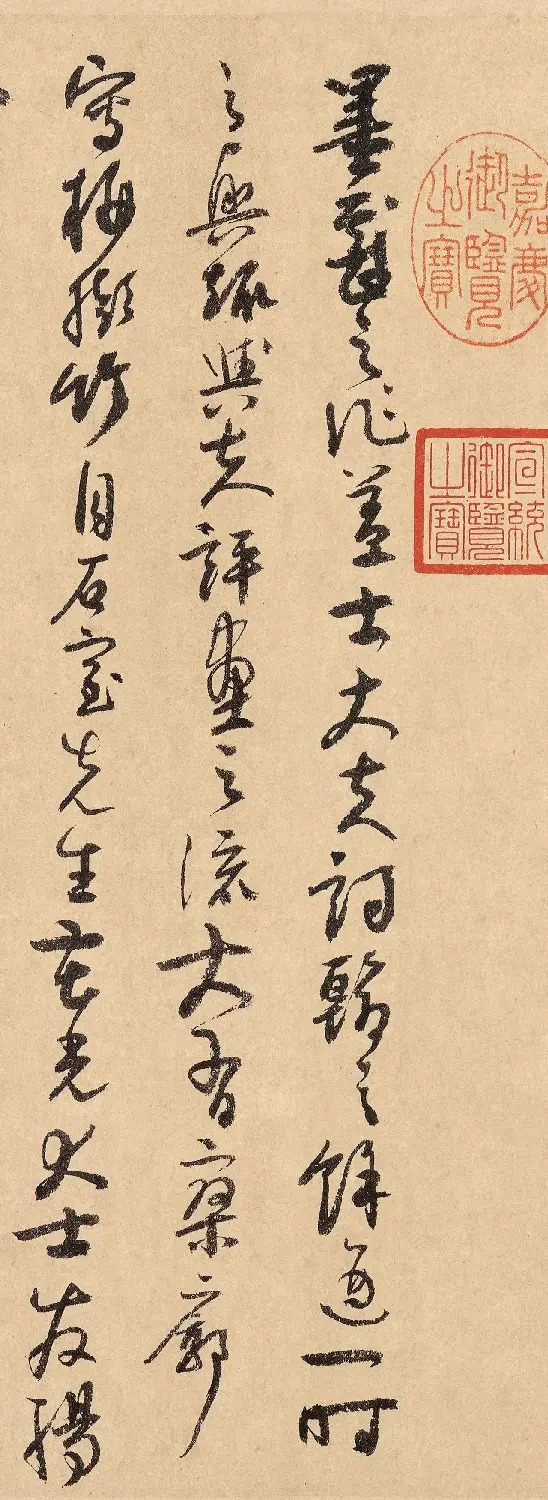 嘉慶御覽之寶
宣統御覽之寶
墨戲之作蓋士大夫詞翰之餘適一時
之興趣與夫評畫之流大有寥廓
寫梅撇竹自石室先生花光大士發揚